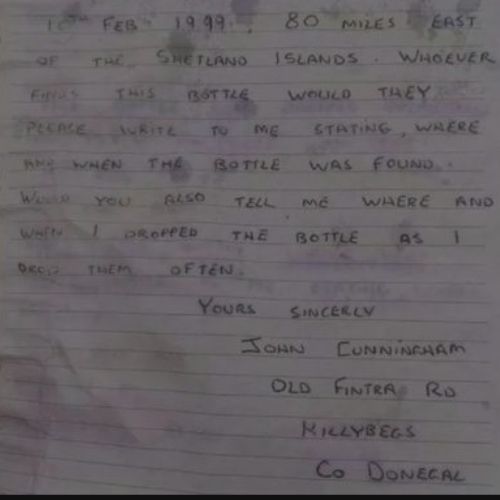 10TH FEB 1999, 80 MILES EAST
OF THE SHETLAND ISLANDS. WHOEVER
FINDS THIS BOTTLE WOULD THEY
PLEASE WRITE TO ME STATING, WHERE
AND WHEN THE BOTTLE WAS FOUND.
WOULD YOU ALSO TELL ME WHERE AND
WHEN I DROPPED THE BOTTLE AS I
DROP THEM OFTEN.
YOURS SINCERLY
JOHN CUNNINGHAM
OLD FINTRA RD
KILLYBEGS
CO DONEGAL